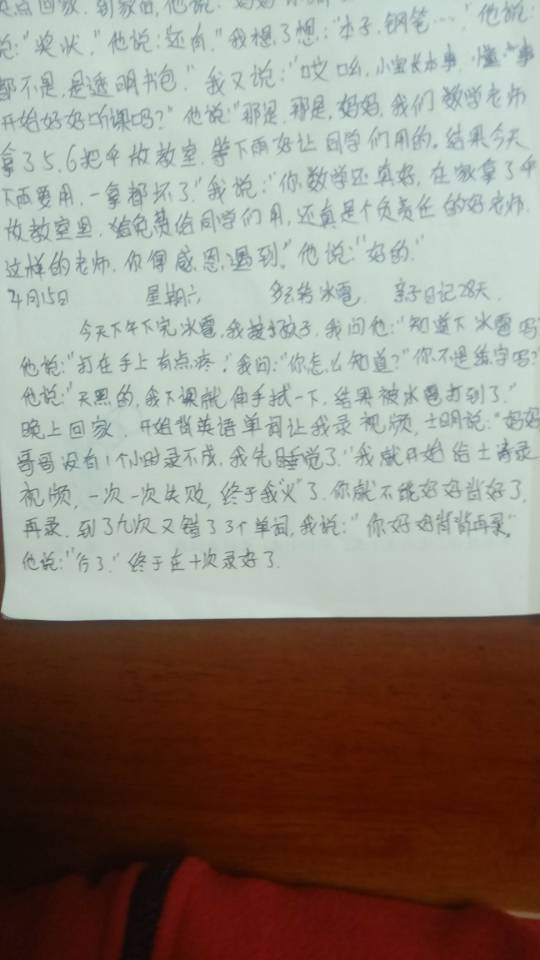 点回家，到家后，他说：妈妈
说："奖状。"他说：还有。"我想了想："本子，钢笔…"他说：
都不是，是透明书包。"我又说："哎呦，小宝长本事，懂事
开始好好听课吗？"他说："那是，那是，妈妈，我们数学老师
拿了5、6把伞放教室，等下雨好让同学们用的。结果今天
下雨要用，一拿都坏了。"我说："你数学还真好，在家拿了伞
放教室里，给免费给同学们用，还真是个负责任的好老师，
这样的老师，你得感恩遇到。"他说："好的。"
4月15日 星期六 多云转冰雹 亲子日记28天.
今天下午下完冰雹，我接孩子，我问他："知道下冰雹吗？
他说："打在手上有点疼。"我问："你怎么知道？"你不是练字吗？
他说："天黑的，我下课就伸手拭一下，结果被冰雹打到了。"
晚上回家，开始背英语单词让我录视频，士明说："妈妈
哥哥没有1个小时录不成，我先睡觉了"我就开始给士 录
视频，一次一次失败，终于我"火"了，你就不能好好背好了，
再录，到了九次又错了3个单词，我说："你好好背背再录。
他说："行了。"终于在十次录好了.